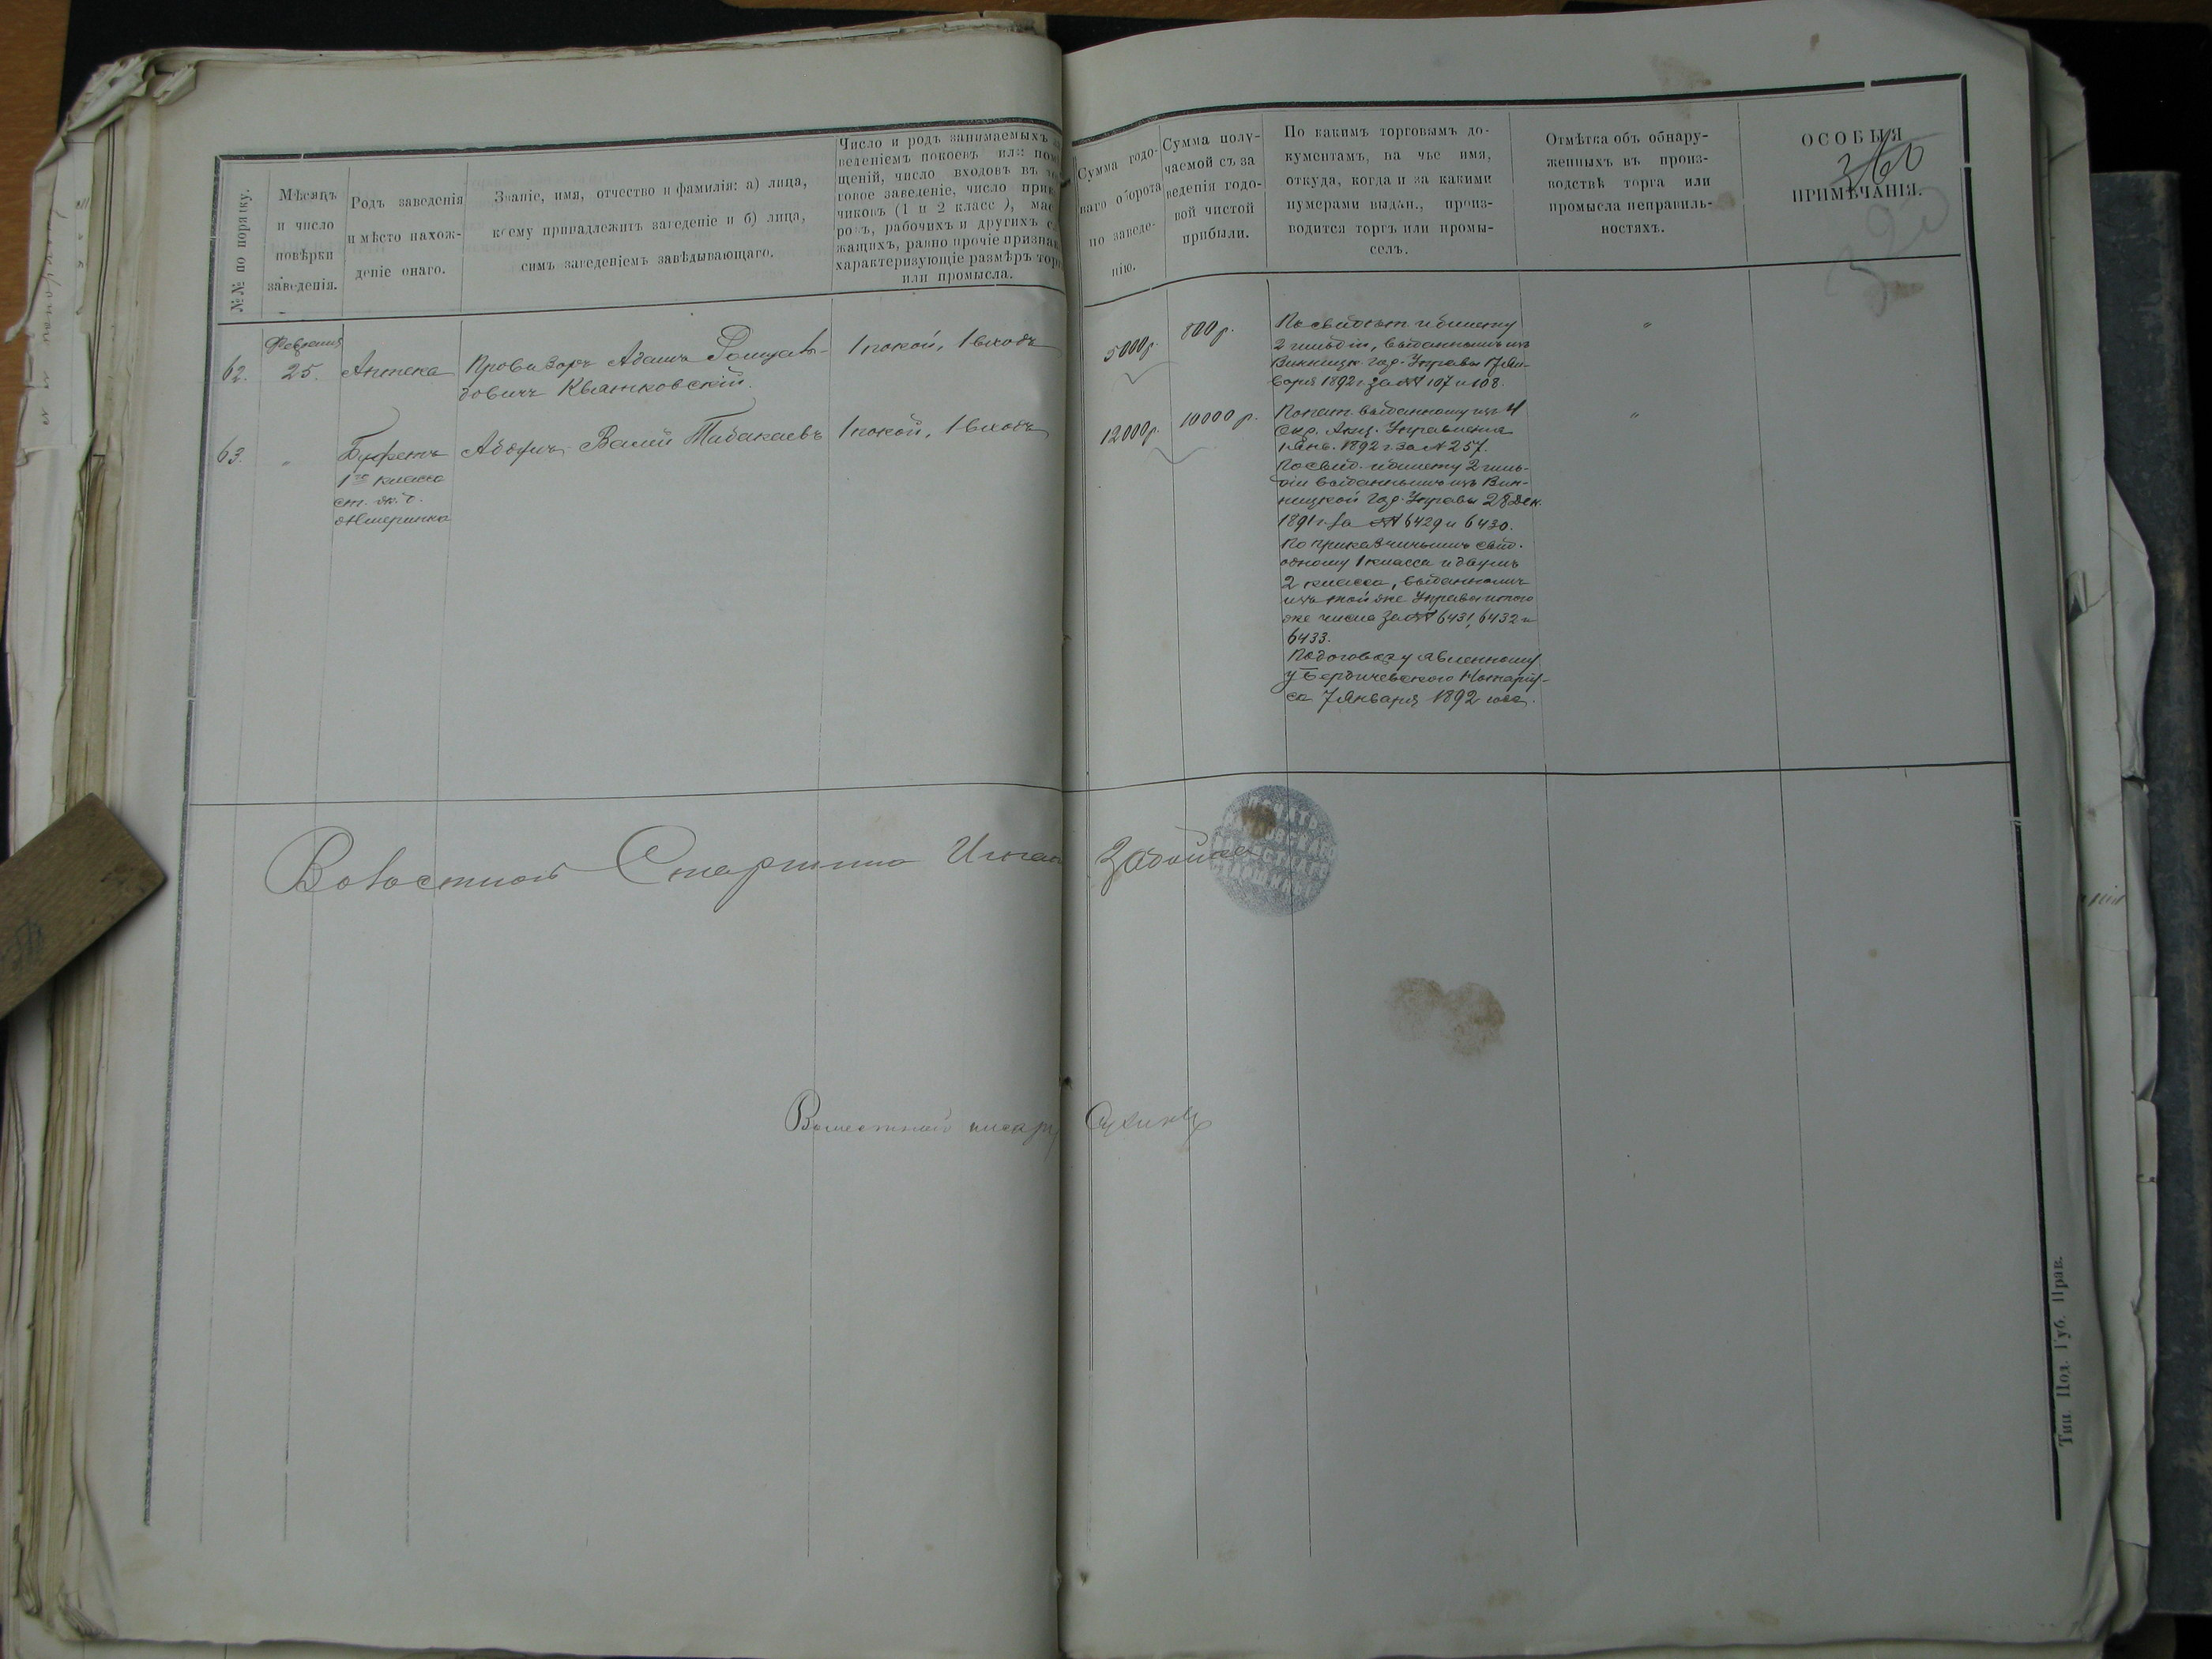 №№ по порядку.
Мѣсяцъ
и число
повѣрки
заведенія.
Родъ заведенія
и мѣсто нахож-
деніе онаго.
Званіе, имя, отчество и фамилія: а) лица,
коему принадлежитъ заведеніе и б) лица,
симъ заведеніемъ завѣдывающаго.
Число и родъ занимаемыхъ за
веденіемъ покоевъ или помѣ
щеній, число входовъ въ
говое заведеніе, число прик
чиковъ (1 и 2 класс ), мас
ровъ, рабочихъ и другихъ с
жащихъ, равно прочіе признак
характеризующіе размѣръ торг
или промысла.
Сумма годо-
ваго оборота
по заведе-
нію.
Сумма полу-
чаемой съ за
веденія годо-
вой чистой
прибыли.
По какимъ торговымъ до-
кументамъ, на чье имя,
откуда, когда и за какими
нумерами выдан., произ-
водится торгъ или промы-
селъ.
Отмѣтка объ обнару-
женныхъ въ произ-
водствѣ торга или
промысла неправиль-
ностяхъ.
ОСОБЫЯ
ПРИМѢЧАНІЯ.
360
320
62.
Февраля
25.
Аптека
Провизоръ Адамъ
довичъ Квятковскій.
1 покой, 1 входъ
5000 р.
800 р.
По свидѣт. и билету
2 гильдіи, выданнымъ изъ
Винницк. гор. Управы 17 Ян-
варя 1892 г. за №№ 107 и 108.
"
63.
"
Буфетъ
1го класса
ст. ж. д.
Жмеринка
Абдулъ Валій Табакаевъ
1 покой, 1 входъ
12000 р.
10000 р.
По пат. выданному изъ 4
Окр. Акц. Управленія
1 Янв. 1892 г. за № 257.
По свид. и билету 2 гиль-
діи выданнымъ изъ Вин-
ницкой Гор. Управы 28 Дек.
1891 г. за №№ 6429 и 6430.
По приказчичьимъ свид.
одному 1 класса и двумъ
2 класса, выданнымъ
изъ той же Управы и того
же числа за №№ 6431, 6432 и
6433.
По договору явленному
у Бердичевского Нотаріу-
са 7 Января 1892 года.
"
Волостной Старшина
ПЕЧАТЬ
Волостной писарь
Тип. Под. Губ. Прав.